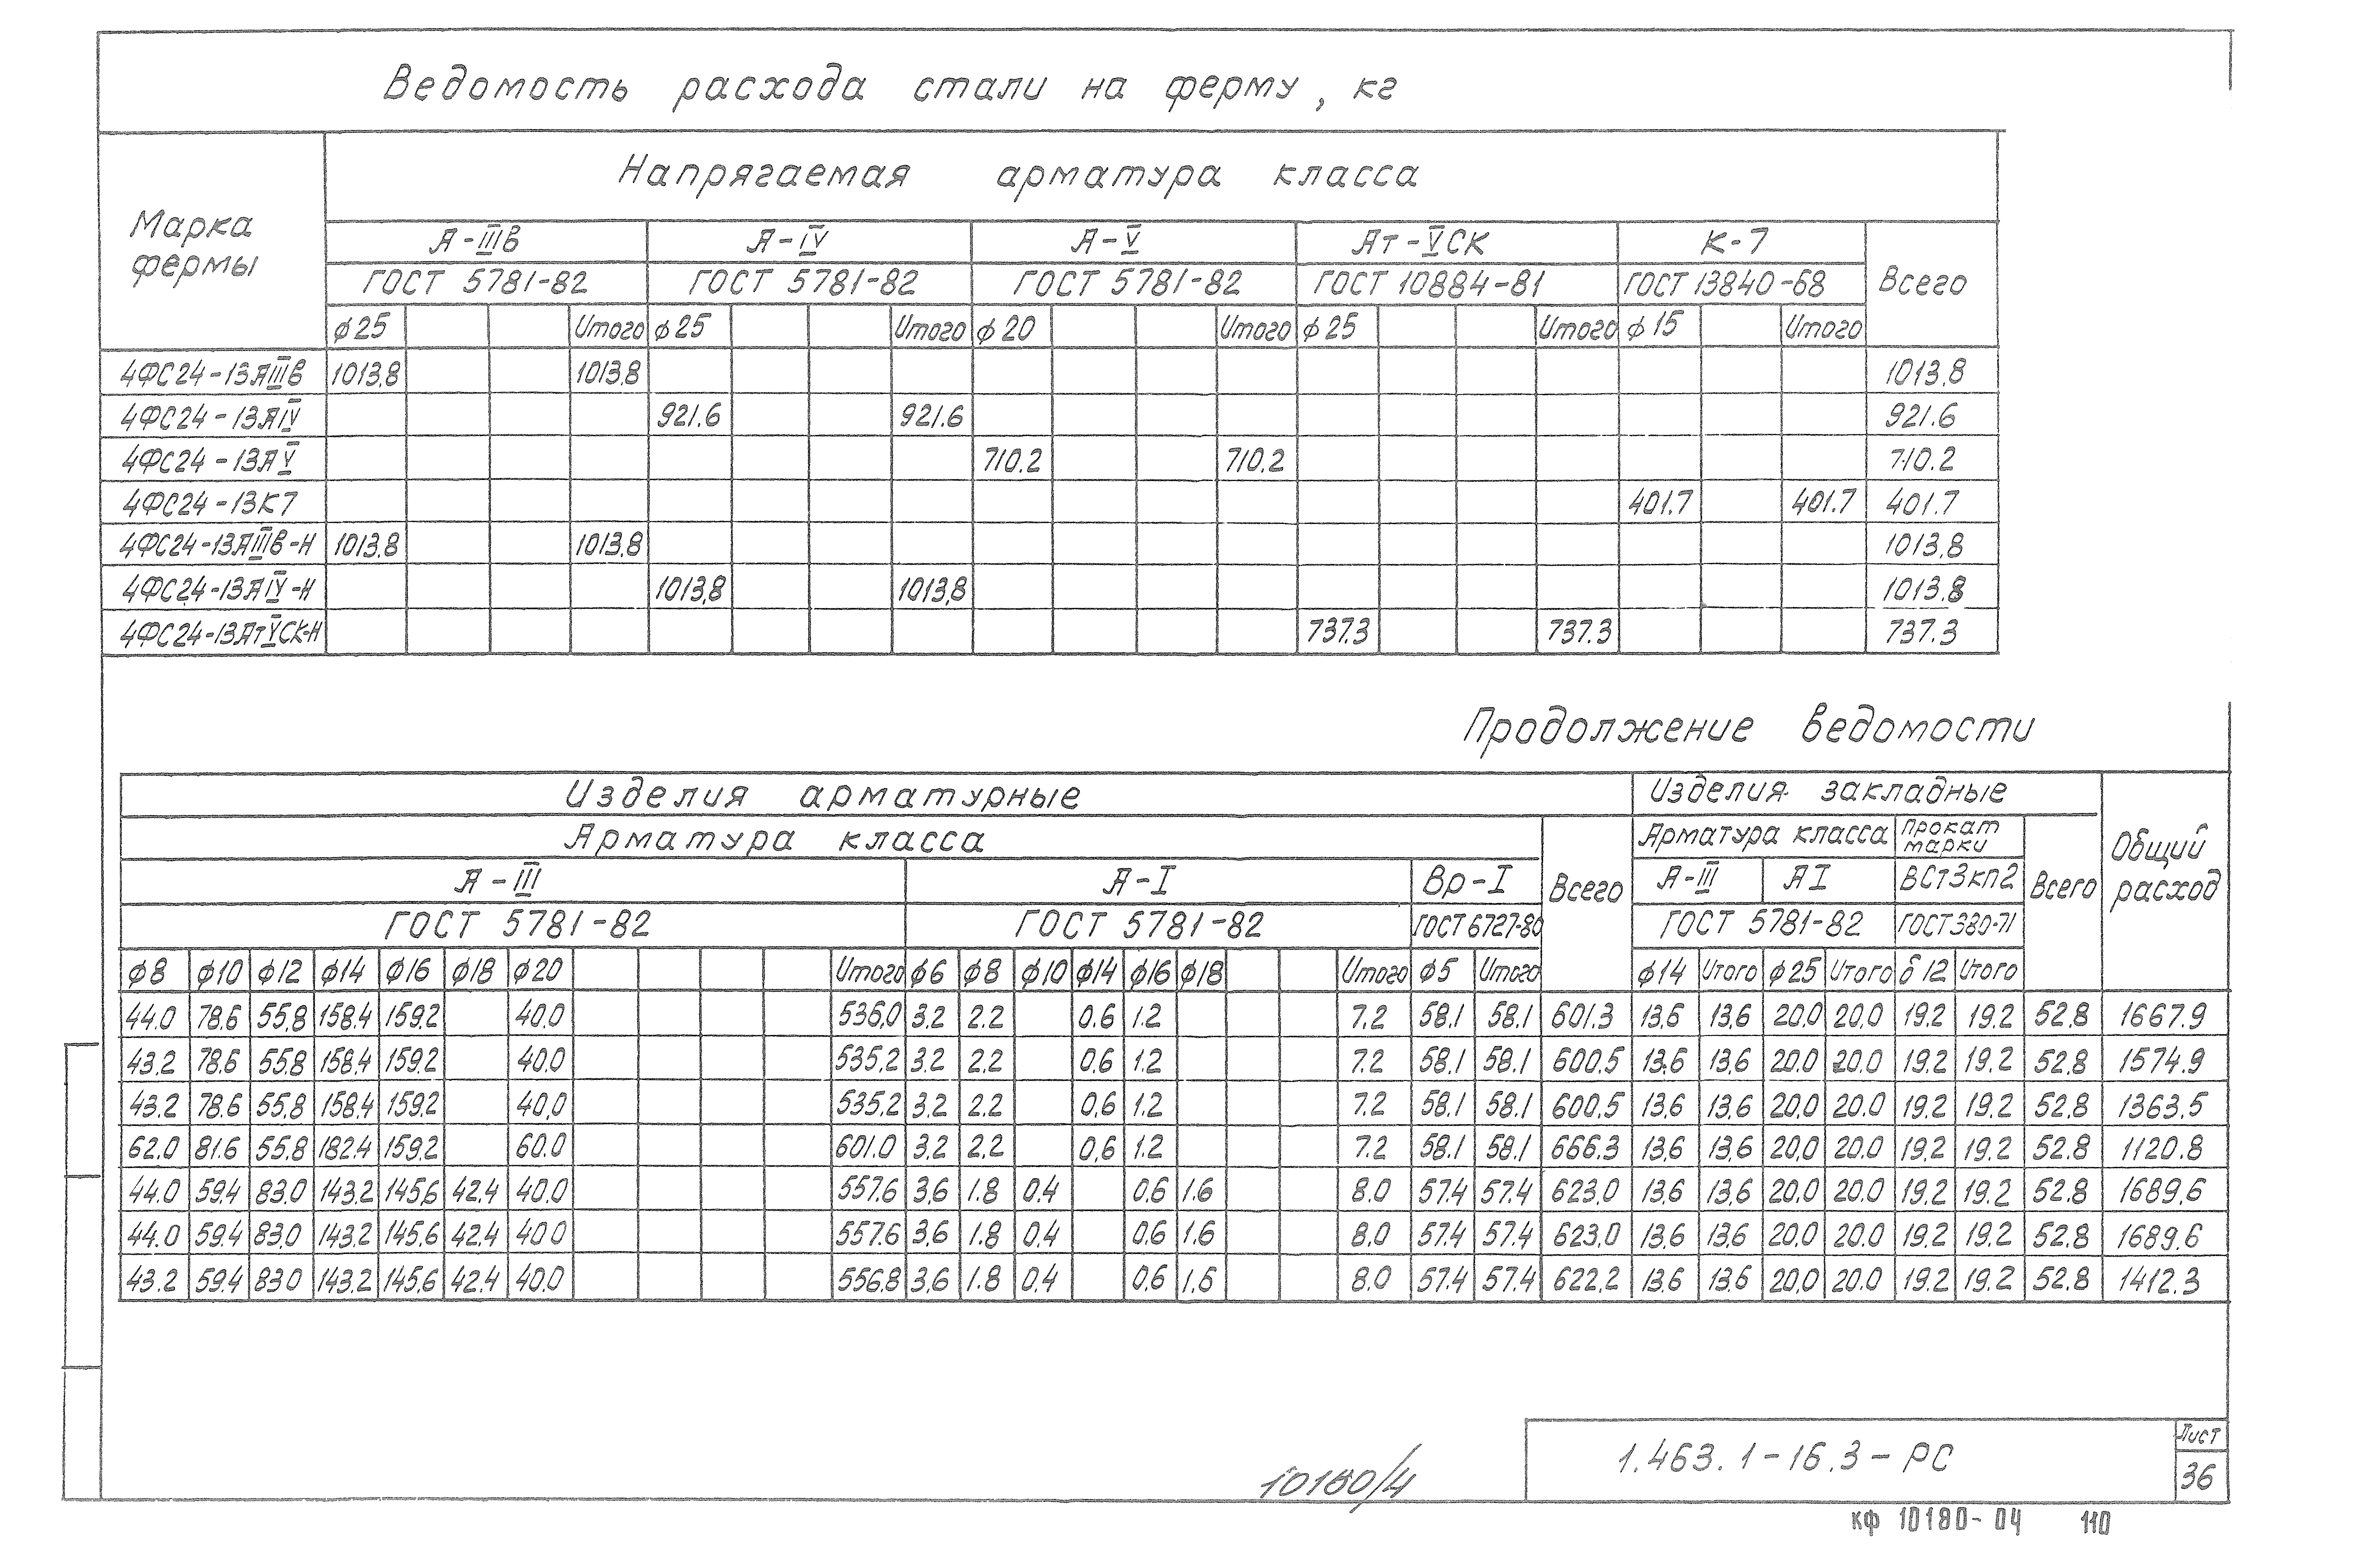 Ведомость расхода стали на ферму, кг
Марка фермы
Напрягаемая арматура класса
А-IIIв А-IV А-V Ат-VСК К-7 Всего
ГОСТ 5781-82 ГОСТ 5781-82 ГОСТ 5781-82 ГОСТ 10884-81 ГОСТ 13840-68
ф25 Итого ф25 Итого ф20 Итого ф25 Итого ф15 Итого
4ФС24-13АIIIв 1013,8 1013,8 1013,8
4ФС24-13АIV 921.6 921.6 921.6
4ФС24-13АV 710.2 710.2 710.2
4ФС24-13К7 401.7 401.7 401.7
4ФС24-13АIIIв-Н 1013,8 1013,8 1013,8
4ФС24-13АIV-Н 1013,8 1013,8 1013.8
4ФС24-13АтVСК-Н 737.3 737.3 737.3
Продолжение ведомости
Изделия арматурные Изделия закладные Общий расход
Арматура класса Всего Арматура класса Прокат марки Всего
А-III А-I Вр-I А-III АI ВСт3кп2
ГОСТ 5781-82 ГОСТ 5781-82 ГОСТ 6727-80 ГОСТ 5781-82 ГОСТ380-71
ф8 ф10 ф12 ф14 ф16 ф18 ф20 Итого ф6 ф8 ф10 ф14 ф16 ф18 Итого ф5 Итого ф14 Итого ф25 Итого δ12 Итого
44.0 78.6 55.8 158.4 159.2 40.0 536,0 3.2 2.2 0.6 1.2 7.2 58.1 58.1 601.3 13.6 13.6 20.0 20.0 19.2 19.2 52.8 1667.9
43.2 78.6 55.8 158.4 159.2 40.0 535,2 3.2 2.2 0.6 1.2 7.2 58.1 58.1 600.5 13.6 13.6 20.0 20.0 19.2 19.2 52.8 1574.9
43.2 78.6 55.8 158.4 159.2 40,0 535.2 3.2 2.2 0,6 1.2 7.2 58.1 58.1 600.5 13.6 13.6 20.0 20.0 19.2 19.2 52.8 1363.5
62.0 81.6 55.8 182.4 159.2 60.0 601.0 3.2 2.2 0,6 1.2 7.2 58.1 58.1 666.3 13.6 13.6 20,0 20.0 19.2 19.2 52.8 1120.8
44.0 59.4 83.0 143.2 145,6 42.4 40.0 557.6 3,6 1.8 0.4 0.6 1.6 8.0 57.4 57.4 623,0 13.6 13.6 20.0 20.0 19.2 19.2 52.8 1689.6
44.0 59.4 83,0 143.2 145.6 42.4 40 0 557.6 3,6 1.8 0.4 0.6 1.6 8.0 57.4 57.4 623,0 13.6 13.6 20,0 20.0 19.2 19.2 52.8 1689.6
43.2 59.4 83 0 143.2 145,6 42.4 40.0 556,8 3,6 1.8 0,4 0,6 1.6 8.0 57.4 57.4 622.2 13.6 13.6 20.0 20.0 19.2 19.2 52.8 1412.3
1.463.1-16.3-РС
Лист
36
10180/4
кф 10180-04 110